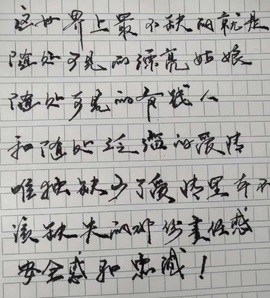 这世界上最不缺的就是
随处可见的漂亮姑娘
随处可见的有钱人
和随处泛滥的爱情
唯独缺少了爱情里本不
该缺失的那份责任感
安全感和忠诚！